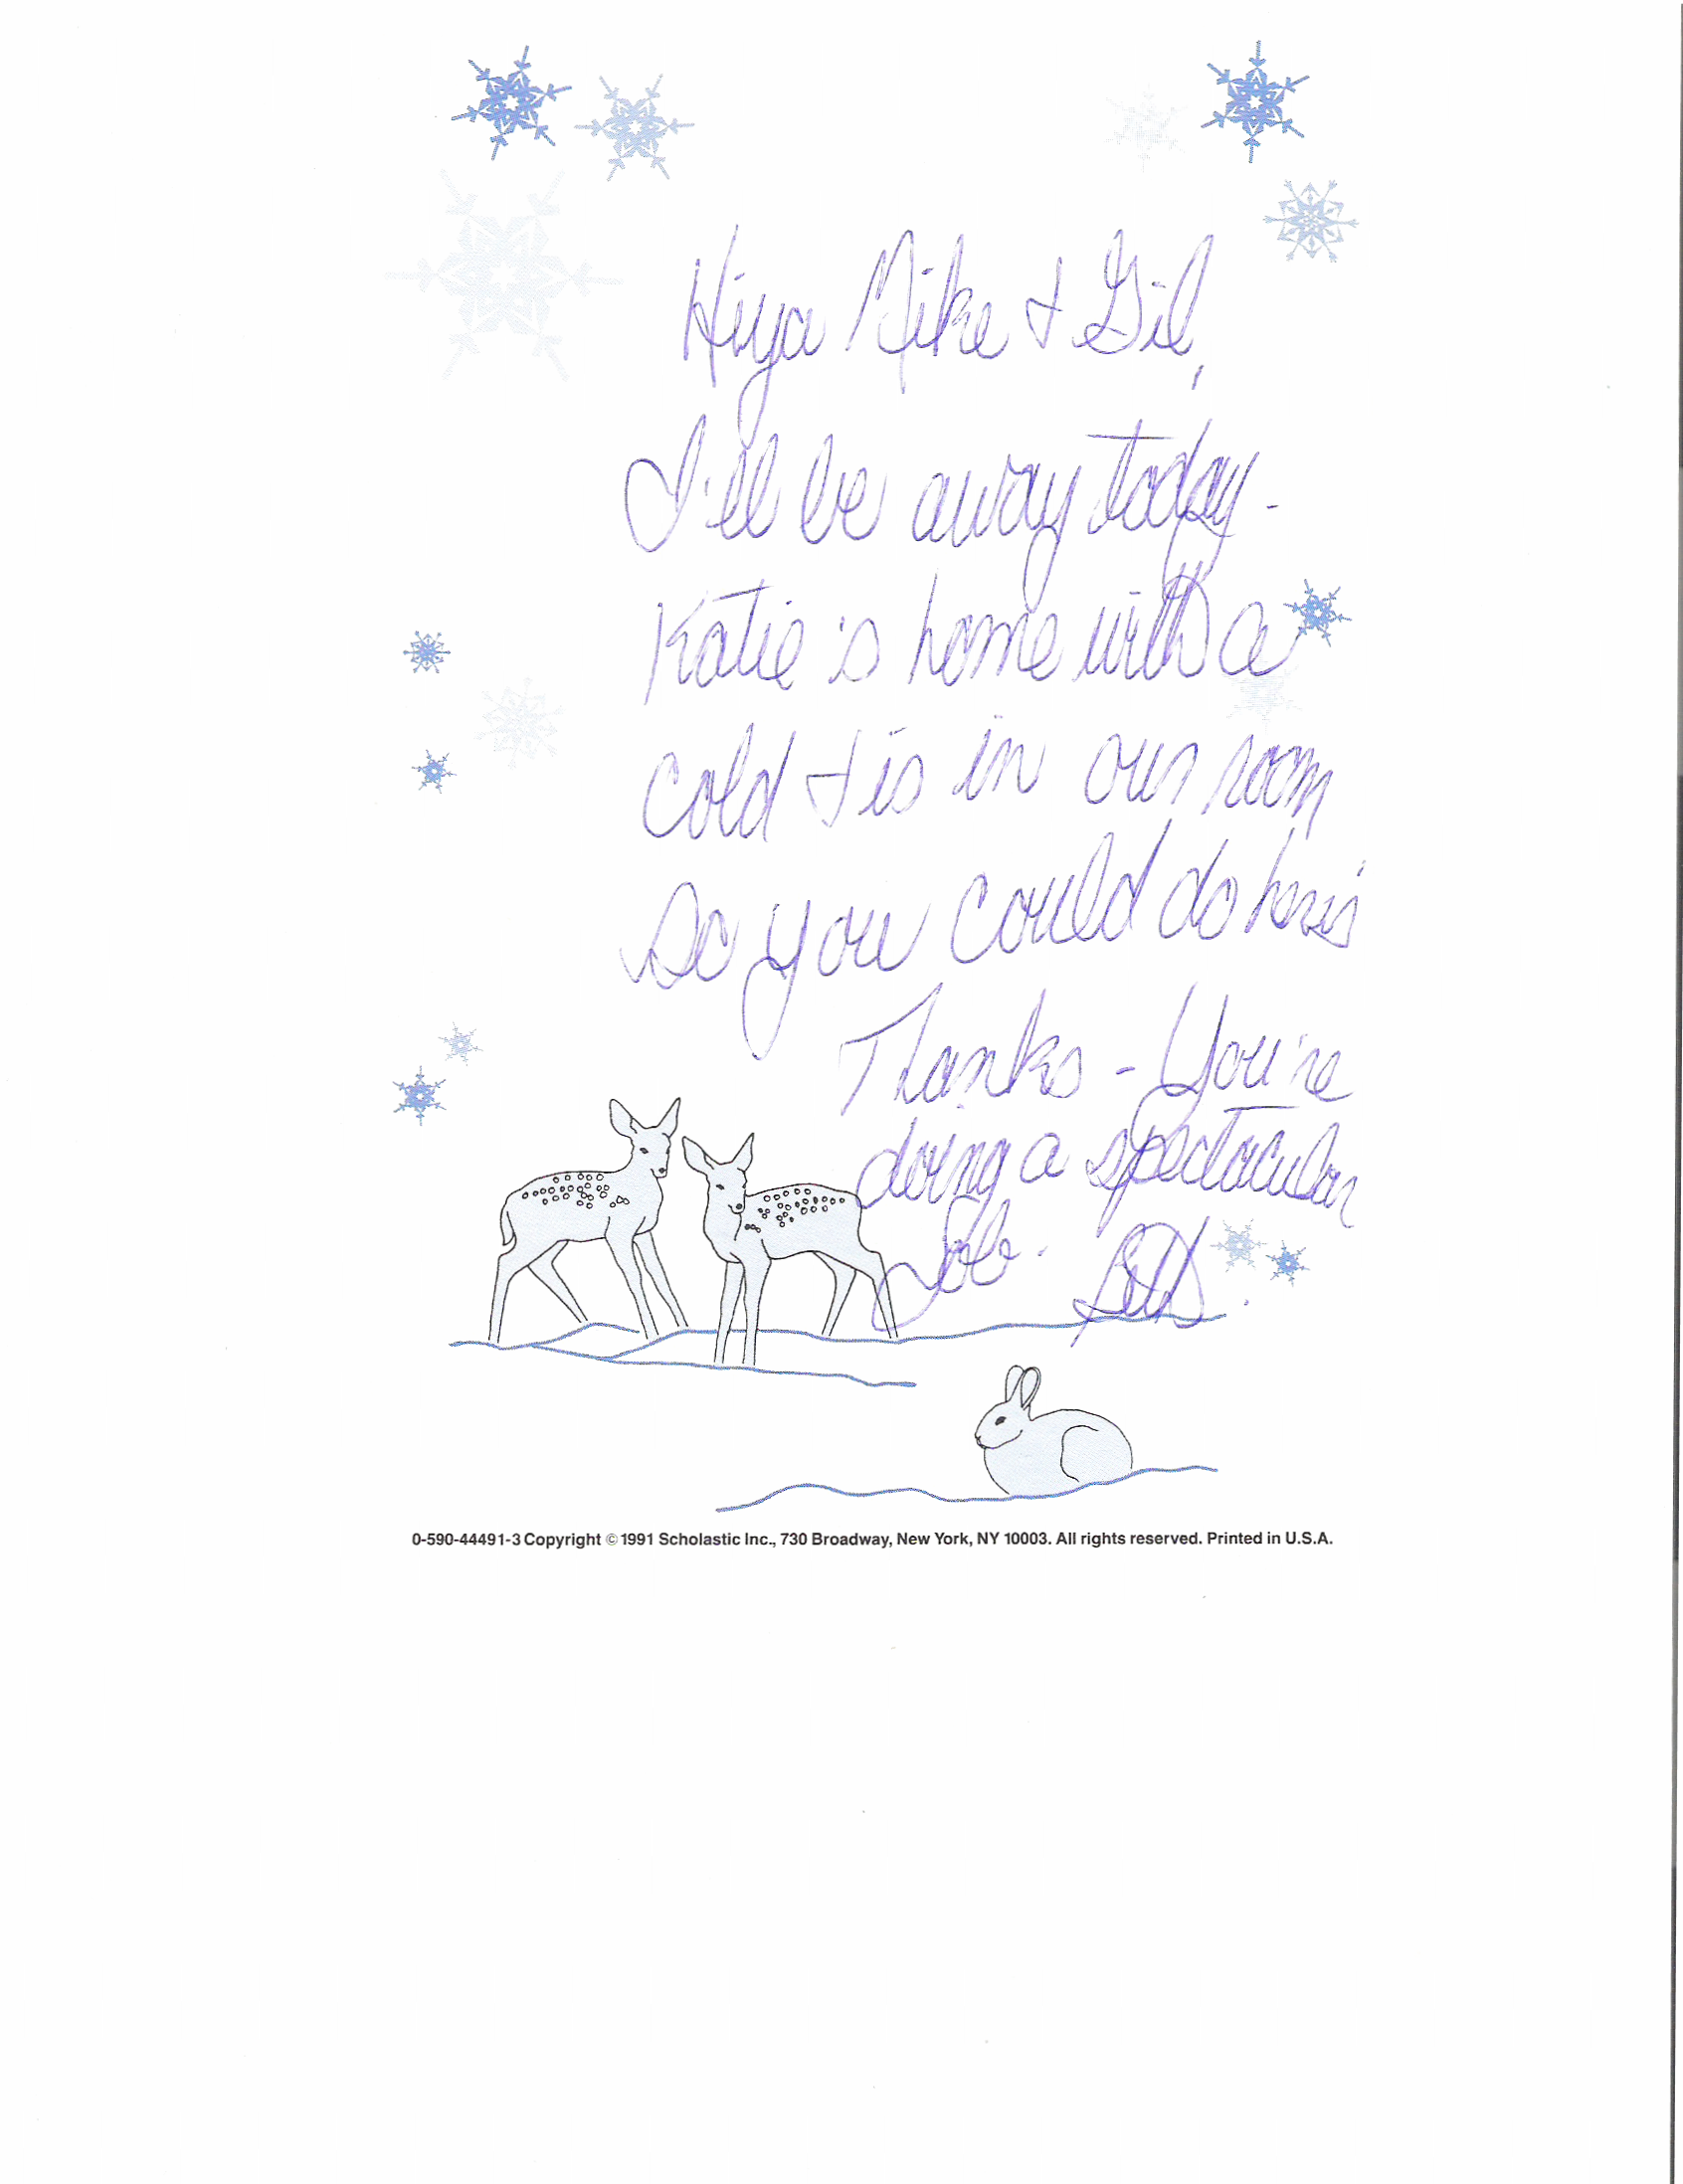 Hiya Mike & Gil,
I'll be away today -
Katie is home with a
cold & is in our room
So you could do her's
Thanks - You're
doing a spectacular
Job. Beth.
0-590-44491-3 Copyright © 1991 Scholastic Inc., 730 Broadway, New York, NY 10003. All rights reserved. Printed in U.S.A.